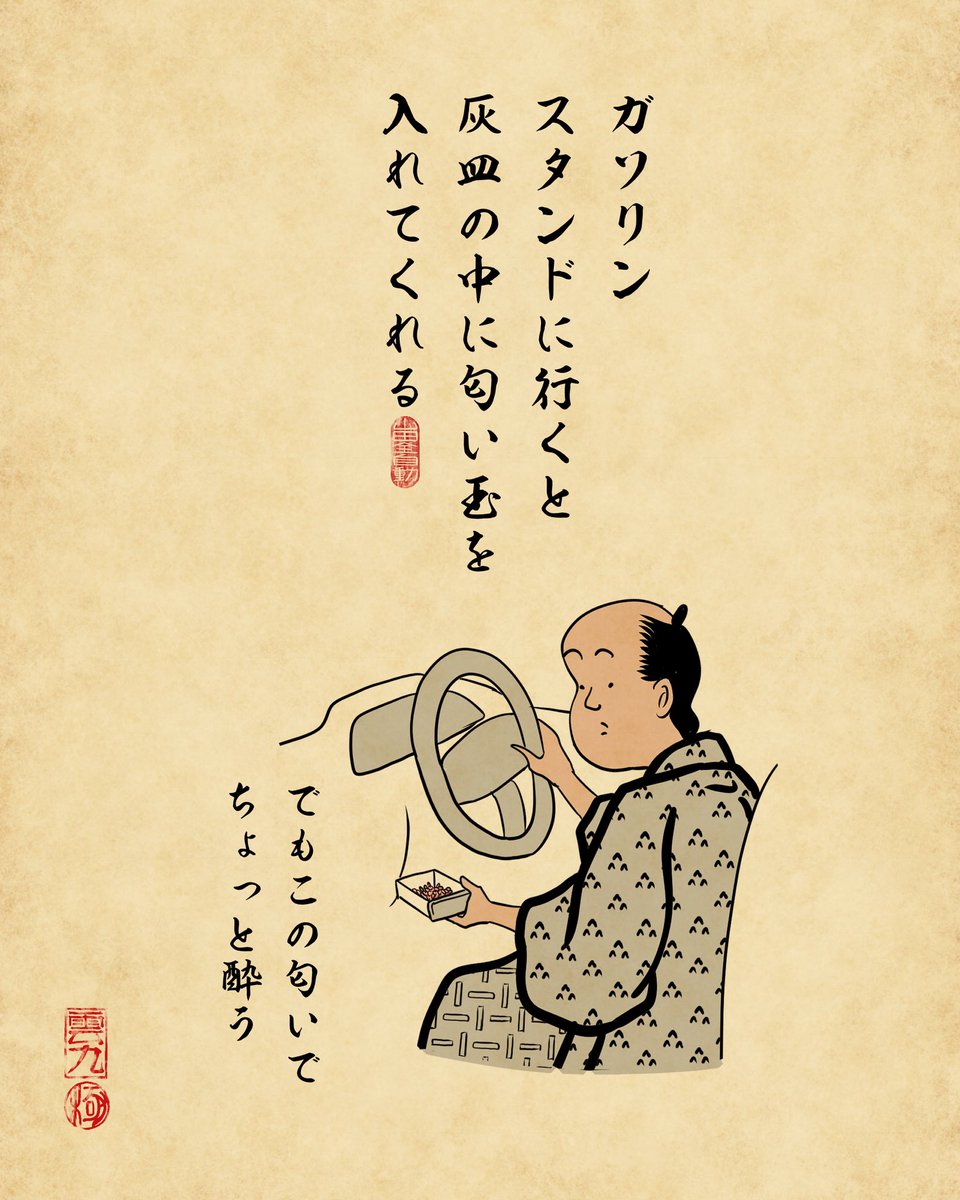 ガソリン
スタンドに行くと
灰皿の中に匂い玉を
入れてくれる
でもこの匂いで
ちょっと酔う